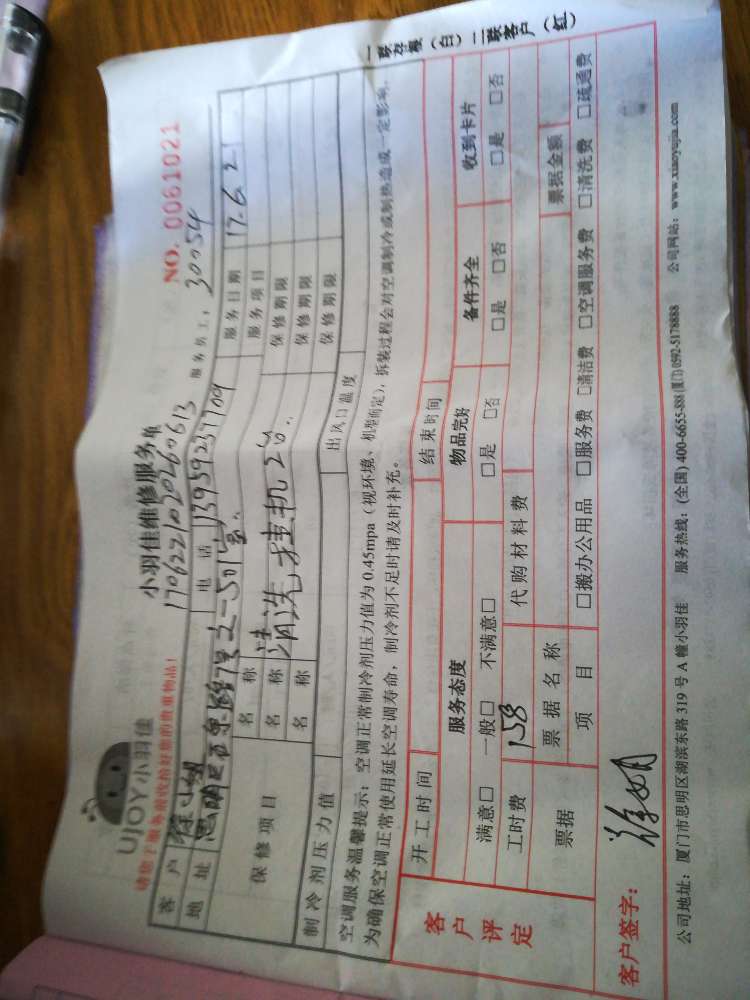 UJOY小羽佳
小羽佳维修服务单
NO. 0061021
请您于服务前收拾好您的贵重物品!
170622102020260613
服务员工: 30054
客户
电话 13959237709
服务日期 17.6.2
地址
保修项目
名称 清洗挂机2台
服务项目
名称
保修期限
名称
保修期限
保修期限
制冷剂压力值
出风口温度
空调服务温馨提示:空调正常制冷剂压力值为0.45mpa(视环境、机型而定),拆装过程会对空调制冷或制热造成一定影响,
为确保空调正常使用延长空调寿命,制冷剂不足时请及时补充。
一联存根(白)二联客户(红)
客户评定
开工时间
结束时间
服务态度
物品完好
备件齐全
收到卡片
满意□ 一般□ 不满意□
□是 □否
□是 □否
□是 □否
工时费 158
代购材料费
票据
票据名称
票据金额
项目
□搬办公用品 □服务费 □清洁费 □空调服务费 □清洗费 □疏通费
客户签字:
公司地址:厦门市思明区湖滨东路319号A幢小羽佳 服务热线:(全国)400-6655-888(厦门)0592-5178888 公司网站:www.xiaoyujia.com